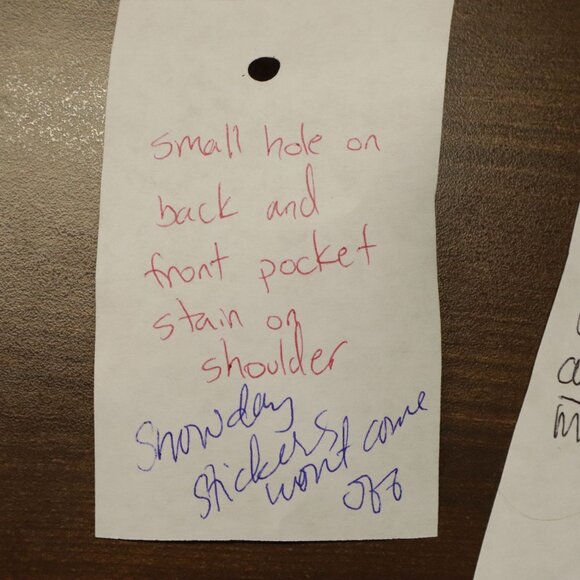 small hole on
back and
front pocket
stain on
shoulder
Snowday
stickers
wont come
off